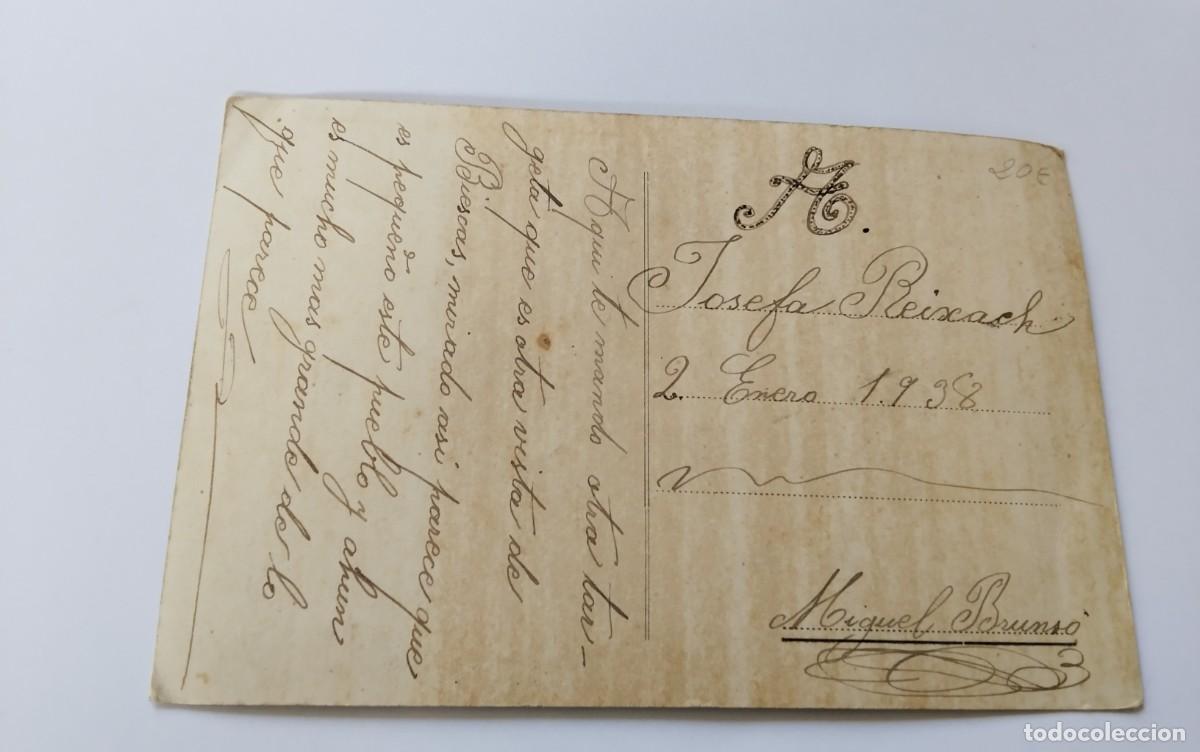 Aqui te mando otra tar-
geta que es otra vista de
Biescas, mirado asi parece que
es pequeño este pueblo y ahun
es mucho mas grande de lo
que parece
A.
20€
Josefa Reixach
2. Enero 1.938
Miguel Brunsó
todocoleccion